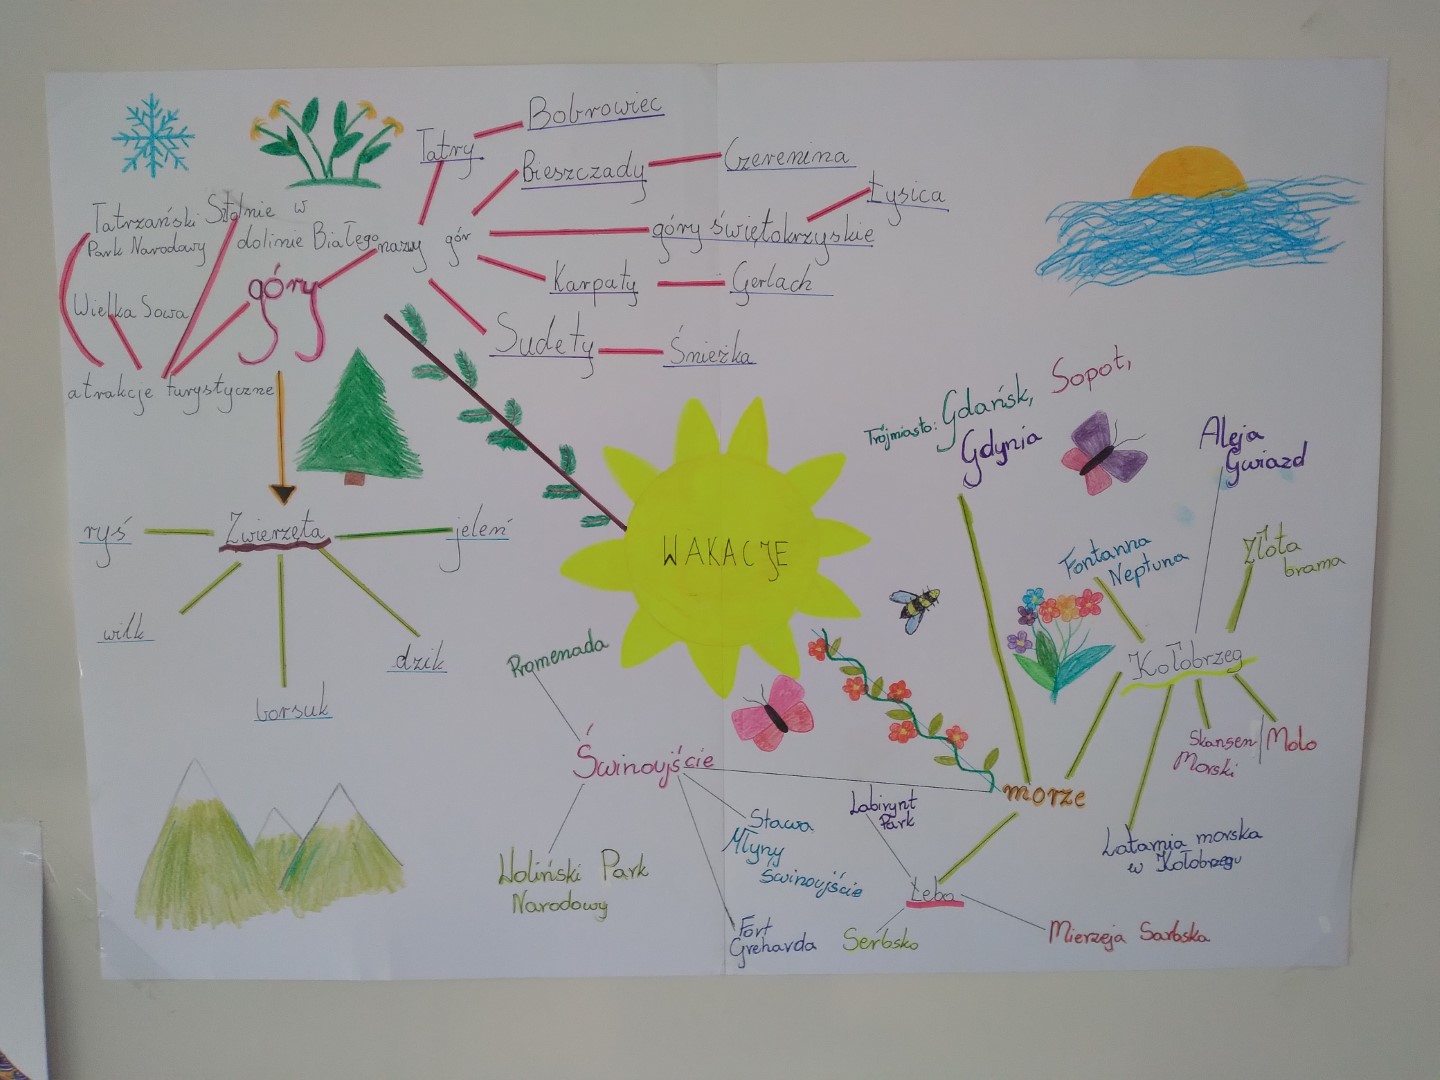 Tatry
Bobrowiec
Bieszczady
Czerenina
Łysica
góry świętokrzyskie
Karpaty
Gerlach
Sudety
Śnieżka
nazwy gór
góry
Tatrzański
Park Narodowy
Sztolnie w
dolinie Białego
Wielka Sowa
atrakcje turystyczne
Zwierzęta
ryś
jeleń
wilk
dzik
borsuk
WAKACJE
Trójmiasto: Gdańsk, Sopot,
Gdynia
Aleja
Gwiazd
Fontanna
Neptuna
Złota
brama
Kołobrzeg
Skansen
Morski
Molo
Latarnia morska
w Kołobrzegu
morze
Promenada
Świnoujście
Woliński Park
Narodowy
Stawa
Młyny
Świnoujście
Fort
Greharda
Labirynt
Park
Łeba
Serbsko
Mierzeja Sarbska